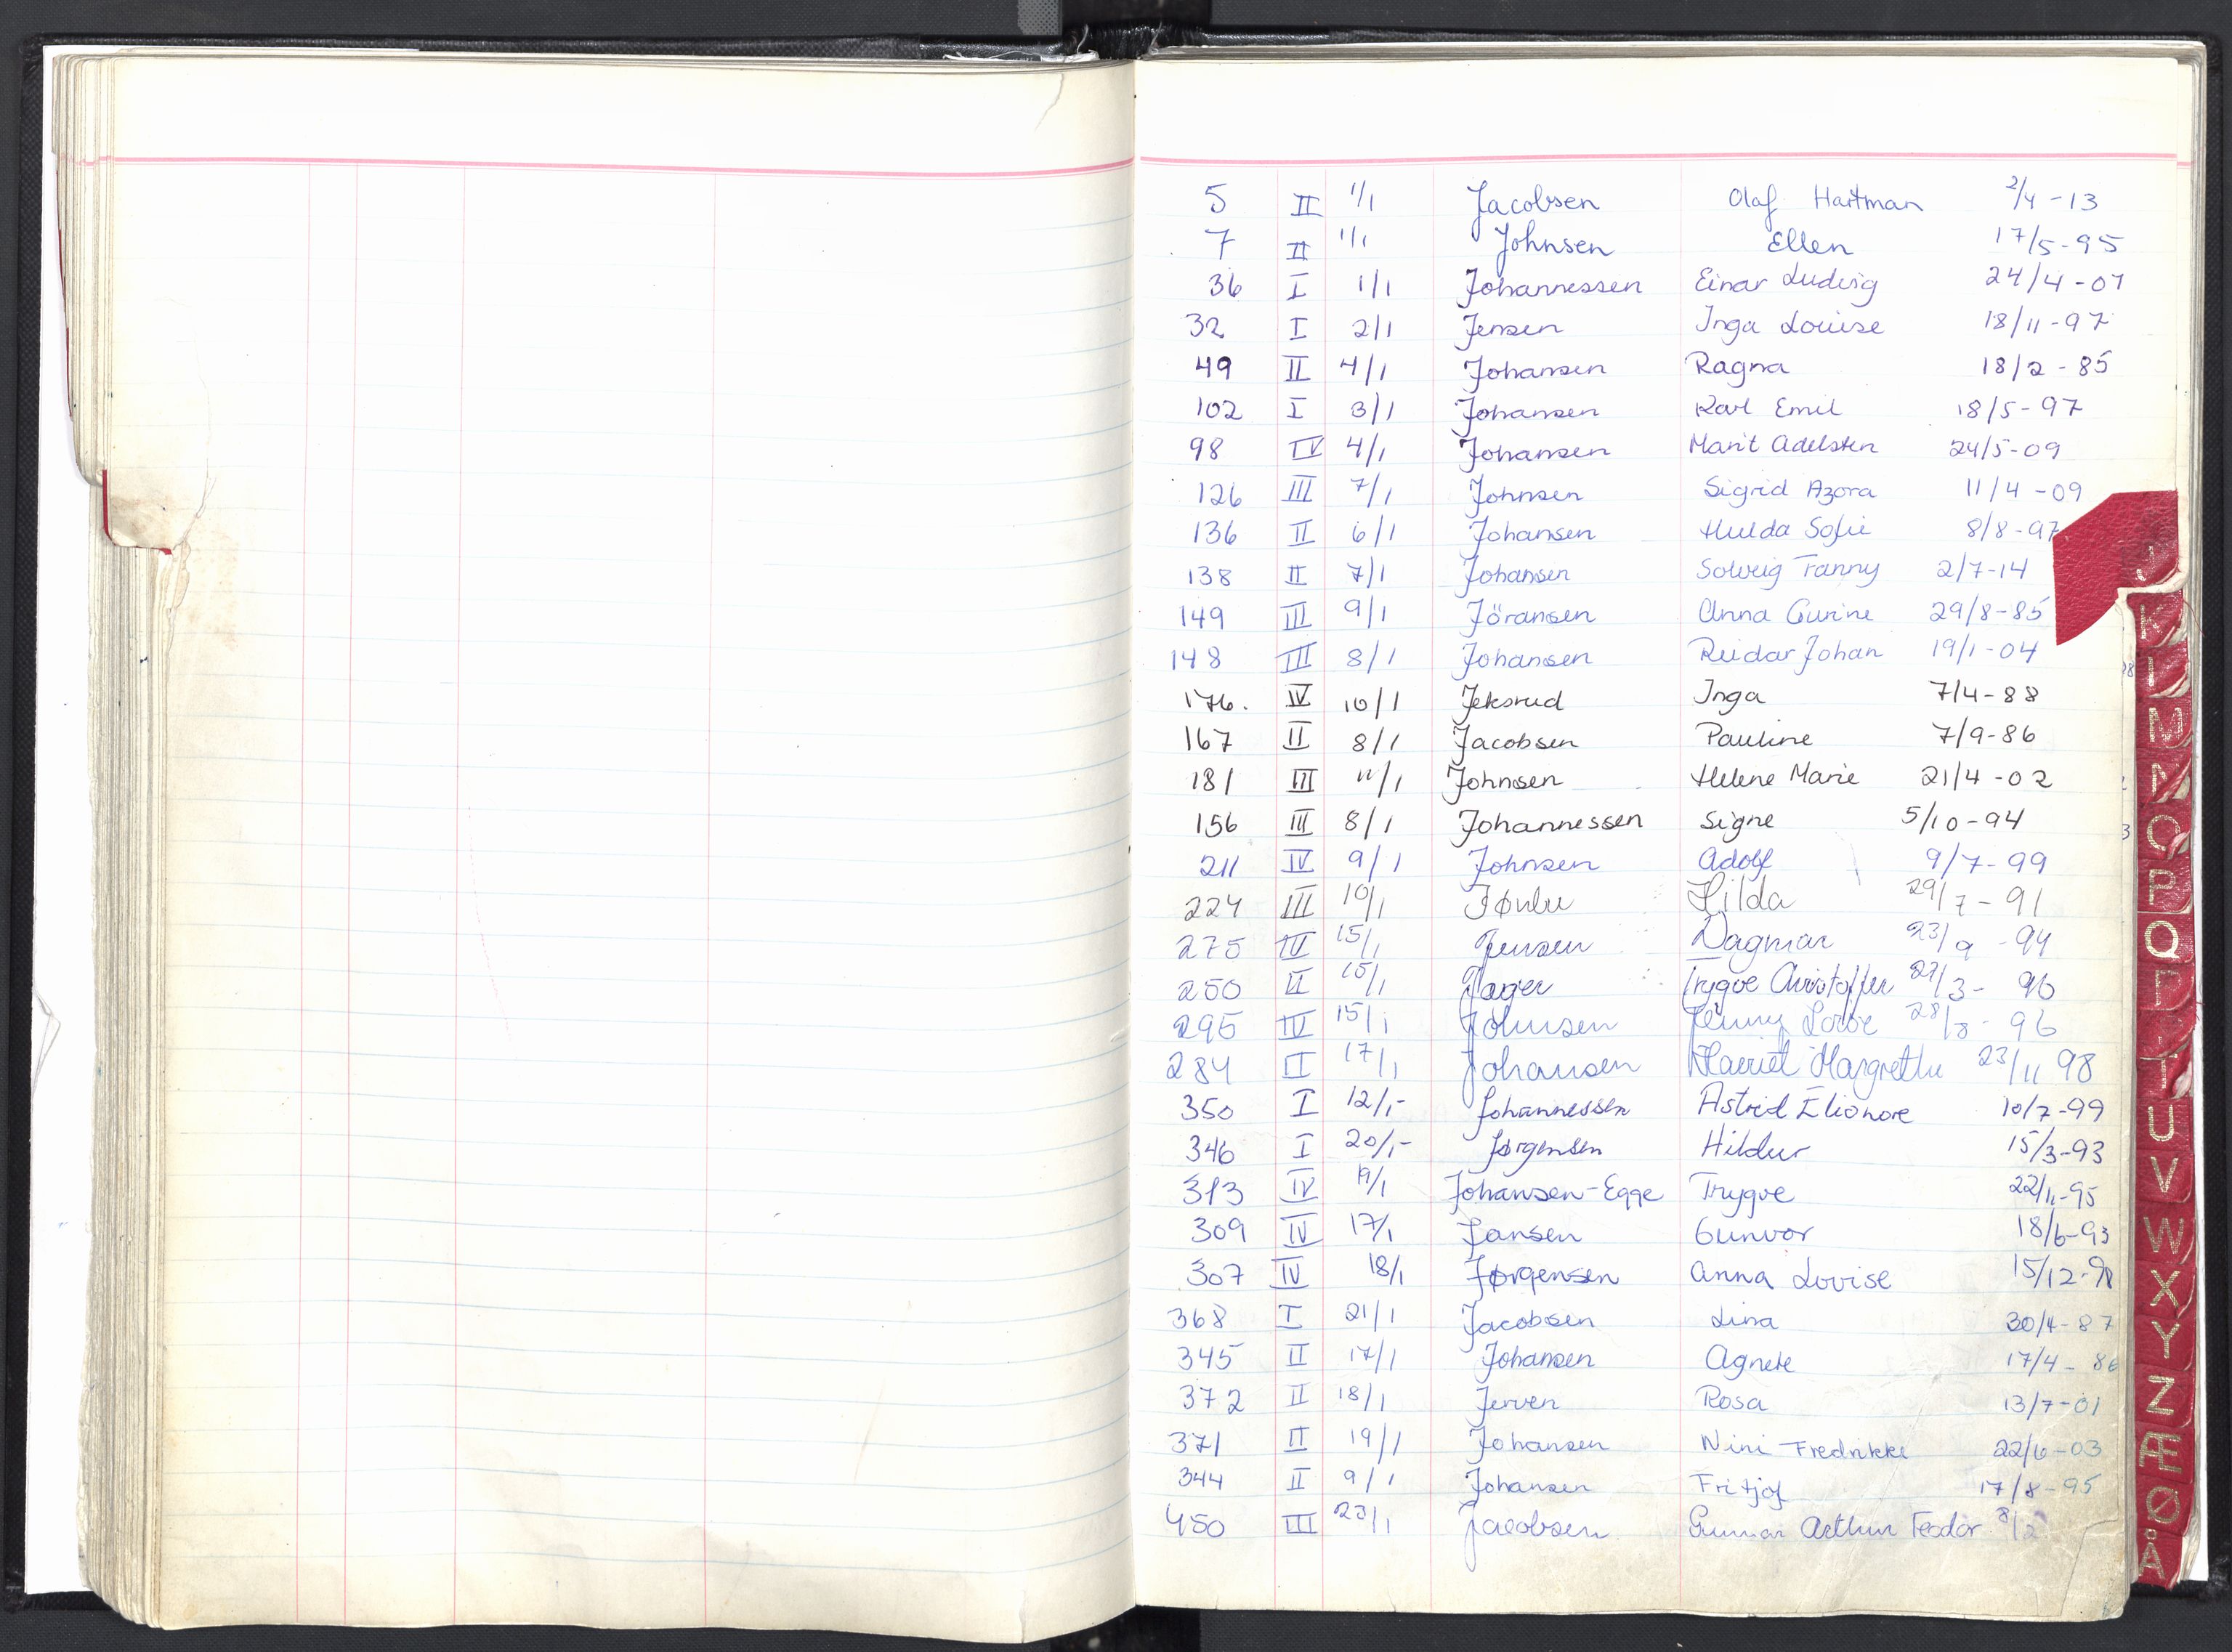 5 II 1/1 Jacobsen Olaf Hartman 2/4-13
7 II 1/1 Johnsen Ellen 17/5-95
36 I 1/1 Johannessen Einar Ludvig 24/4-07
32 I 2/1 Jensen Inga Louise 18/11-97
49 II 4/1 Johansen Ragna 18/2-85
102 I 3/1 Johansen Karl Emil 18/5-97
98 IV 4/1 Johansen Marit Adelsten 24/5-09
126 III 7/1 Johnsen Sigrid Azora 11/4-09
136 II 6/1 Johansen Hulda Sofie 8/8-97
138 II 7/1 Johansen Solveig Fanny 2/7-14
149 III 9/1 Jöransen Anna Gurine 29/8-85
148 III 8/1 Johansen Reidar Johan 19/1-04
176. IV 10/1 Jeksrud Inga 7/4-88
167 II 8/1 Jacobsen Pauline 7/9-86
181 III 11/1 Johnsen Helene Marie 21/4-02
156 III 8/1 Johannessen Signe 5/10-94
211 IV 9/1 Johnsen Adolf 9/7-99
224 III 10/1 Hilda 29/7-91
275 IV 15/1 Jensen Dagmar 23/9-94
250 II 15/1 Jager Trygve Christoffer 27/3-96
295 IV 15/1 Johnsen Jenny 28/8-96
284 II 17/1 Johansen Harriet Margrethe 23/11 98
350 I 12/1- Johannessen Astrid Elionore 10/7-99
346 I 20/1- Jørgensen Hildur 15/3-93
313 IV 19/1 Johansen-Egge Trygve 22/11-95
309 IV 17/1 Jansen Gunvor 18/6-93
307 IV 18/1 Jørgensen Anna Lovise 15/12-
368 I 21/1 Jacobsen Lina 30/4-87
345 II 17/1 Johansen Agnete 17/4-86
372 II 18/1 Jerven Rosa 13/7-01
371 II 19/1 Johansen Nini Fredrikke 22/6-03
344 II 9/1 Johansen Fritjof 17/8-95
450 III 23/1 Jacobsen Gunnar Arthur Feodor 8/2
J
K
L
M
N
O
P
Q
R
T
U
V
W
X
Y
Z
Æ
Ø
Å